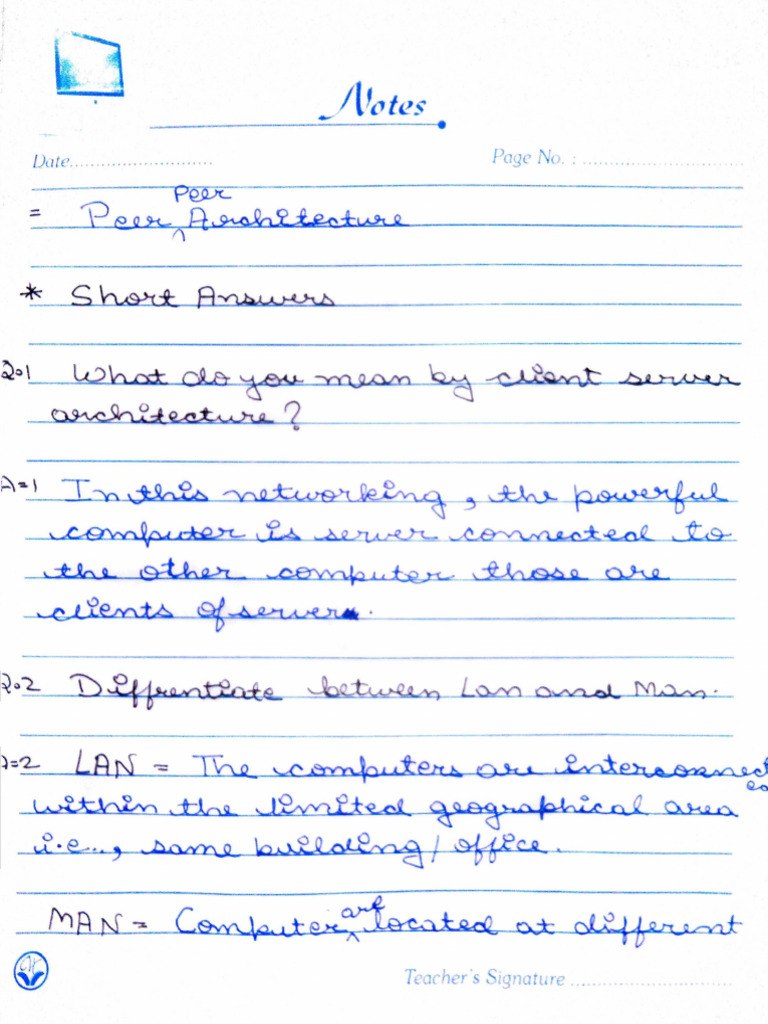 Notes
Date..............................
Page No. : ..............................
Peer
= Peer ^ Architecture
* Short Answers
Q.1 What do you mean by client server
architecture?
A=1 In this networking, the powerful
computer is server connected to
the other computer those are
clients of server.
Q.2 Diffrentiate between Lan and Man.
A=2 LAN = The computers are interconnect
ed
within the limited geographical area
i.e.., same building/office.
are
MAN = Computer ^ located at different
Teacher's Signature ..............................